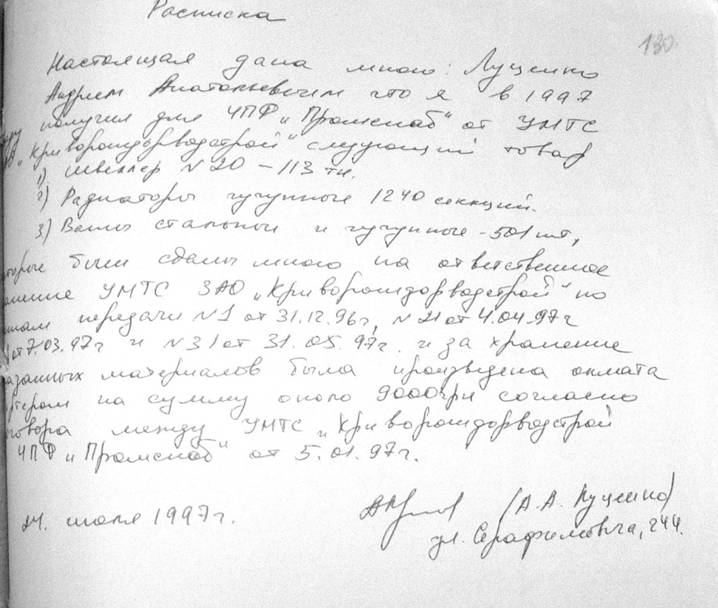 Расписка
130
Настоящая дана мною: Луценко
Андреем Анатольевичем что я в 1997
году получил для ЧПФ „Промснаб" от УМТС
„Криворождорводстрой" следующий товар
1) швеллер N20 – 113 тн.
2) Радиаторы чугунные 1240 секций.
3) Ванны стальные и чугунные - 501 шт,
которые были сданы мною на ответственное
хранение УМТС ЗАО „Криворождорводстрой" по
актам передачи N1 от 31.12.96г, N21 от 4.04.97г
от 7.03.97г и N31 от 31.05.97г. и за хранение
указанных материалов была произведена оплата
бартером на сумму около 9000 грн согласно
договора между УМТС „Криворождорводстрой
ЧПФ „Промснаб" от 5.01.97г.
июля 1997г.
(А.А. Луценко)
ул. Серафимовича, 244.